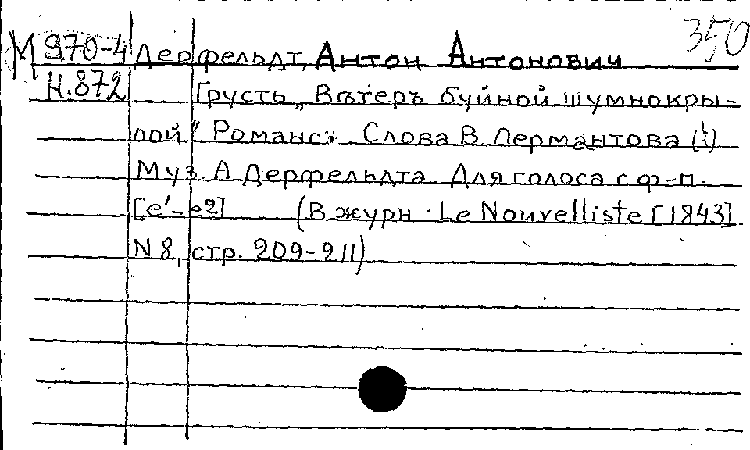 350
М 970-4 Дерфельдт, Антон Антонович
Н.872 Грусть „Вѣтеръ буйной шумнокры-
лой" Романсъ. Слова В. Лермантова (!)
Муз. А Дерфельдта. Для голоса с ф-п.
[e'-e2] (В журн. Le Nouvelliste [1843]
N 8, стр. 209-211)